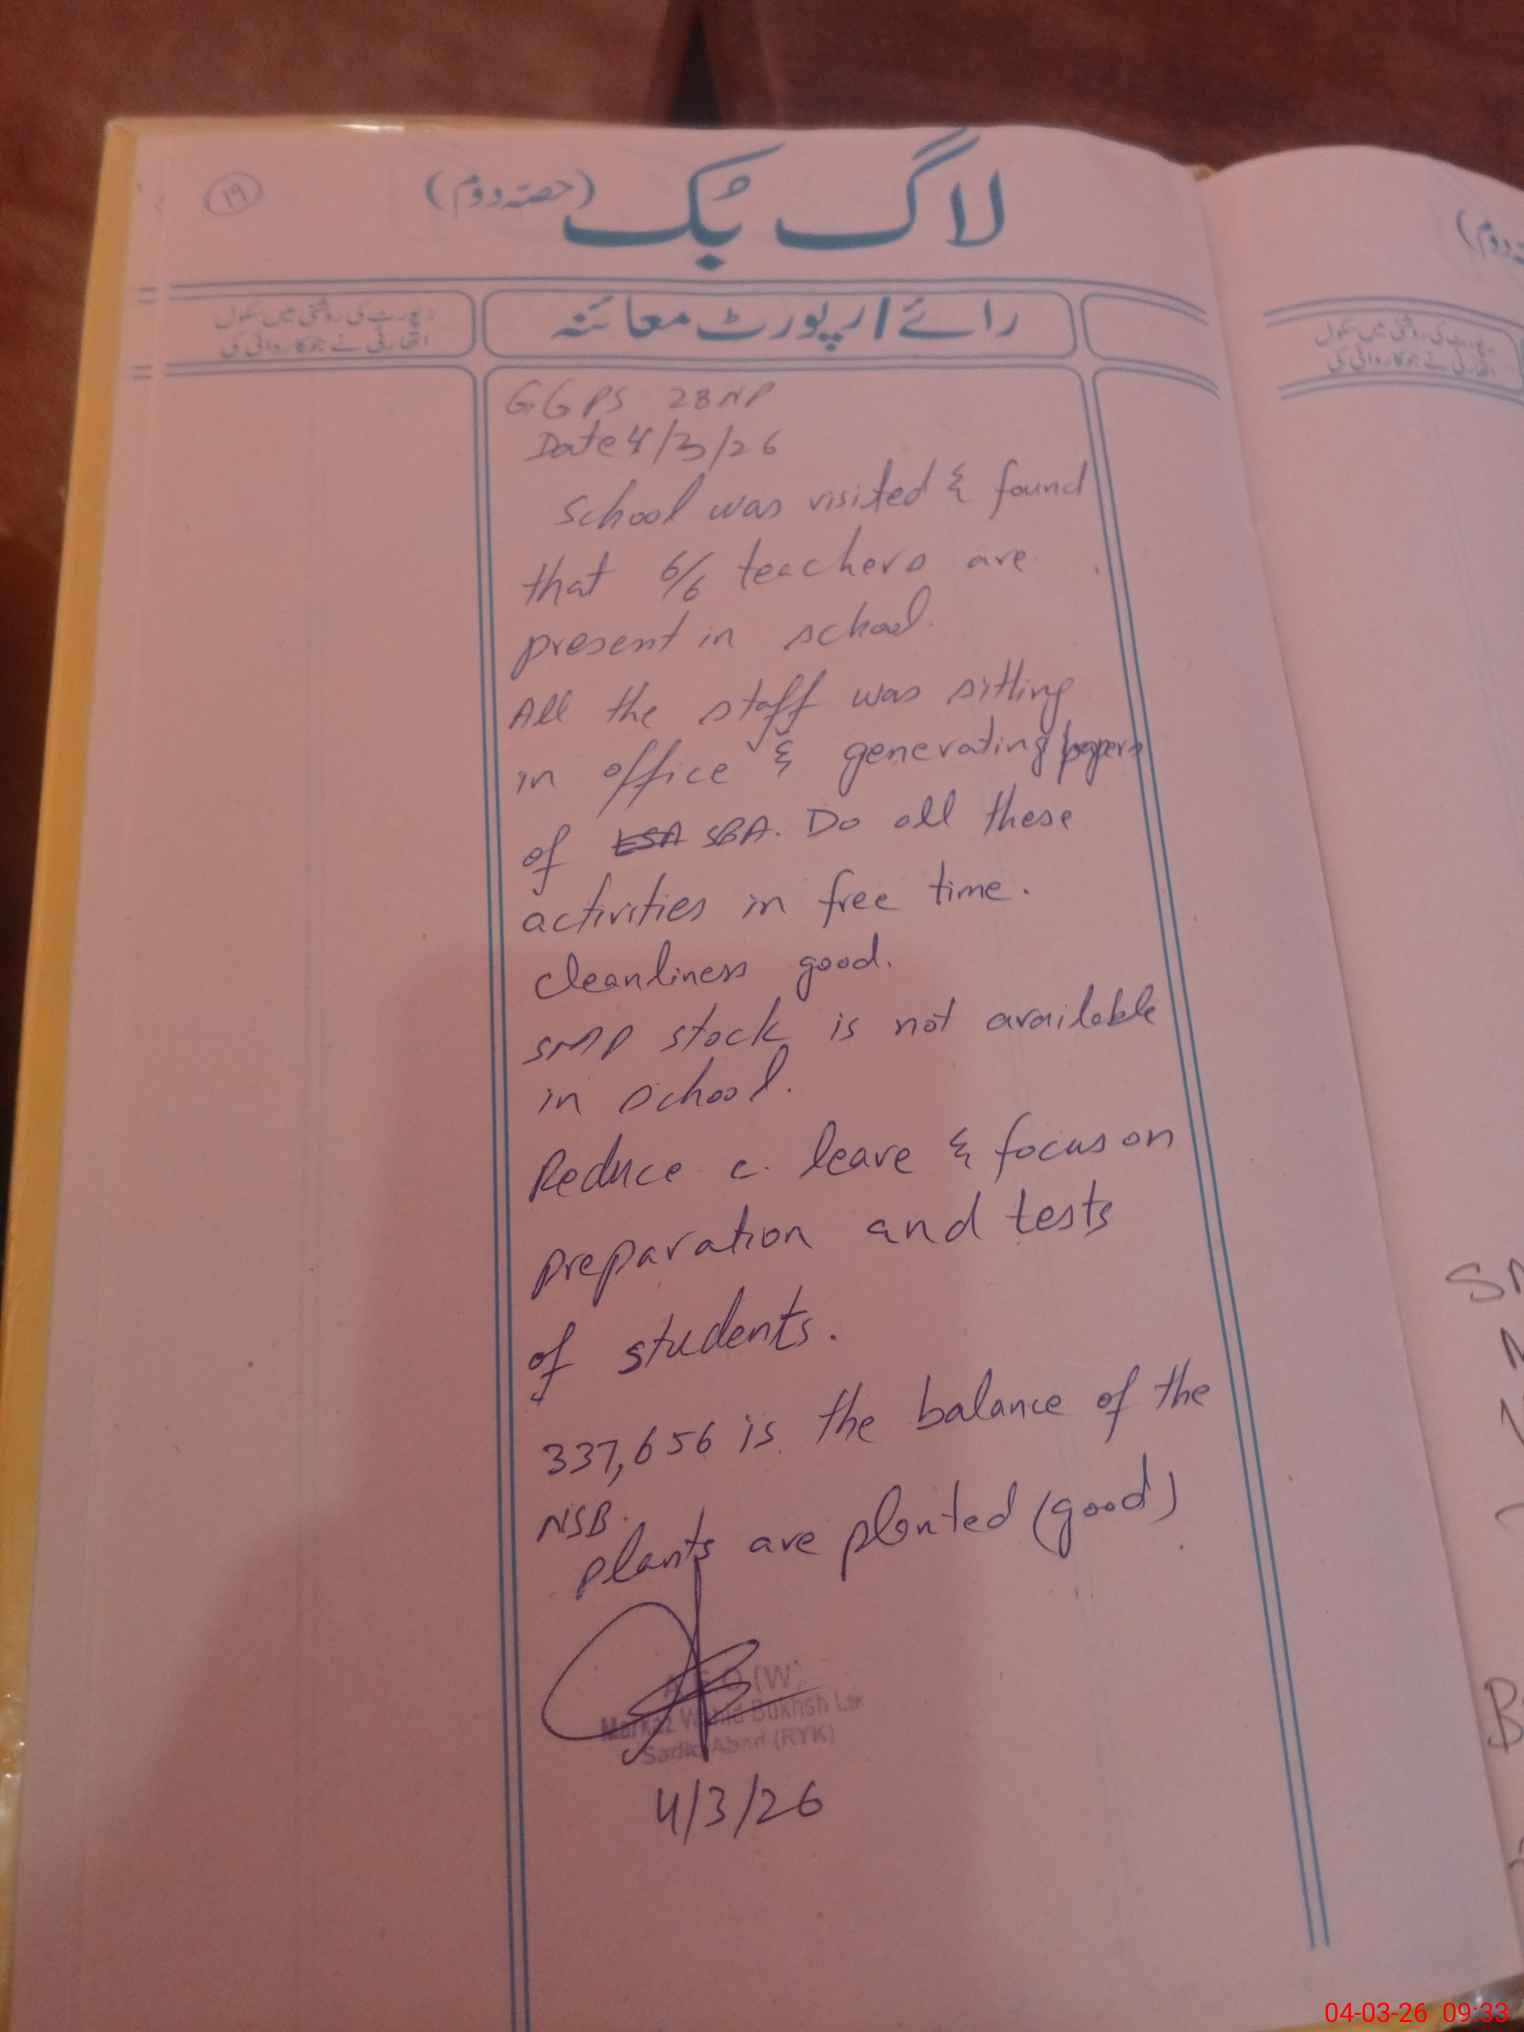 ۱۹
لاگ بُک (حصّہ دوم)
رائے / رپورٹ معائنہ
رپورٹ کی روشنی میں سکول
اتھارٹی نے جو کاروائی کی
GGPS 28NP
Date 4/3/26
School was visited & found
that 6/6 teachers are
present in school.
All the staff was sitting
in office & generating papers
of ESA SBA. Do all these
activities in free time.
cleanliness good.
SMP stock is not available
in school.
Reduce c. leave & focus on
preparation and tests
of students.
337,656 is the balance of the
NSB.
plants are planted (good)
(W)
Markaz Bukhsh
(RYK)
4/3/26
رپورٹ کی روشنی میں سکول
اتھارٹی نے جو کاروائی کی
04-03-26 09:33